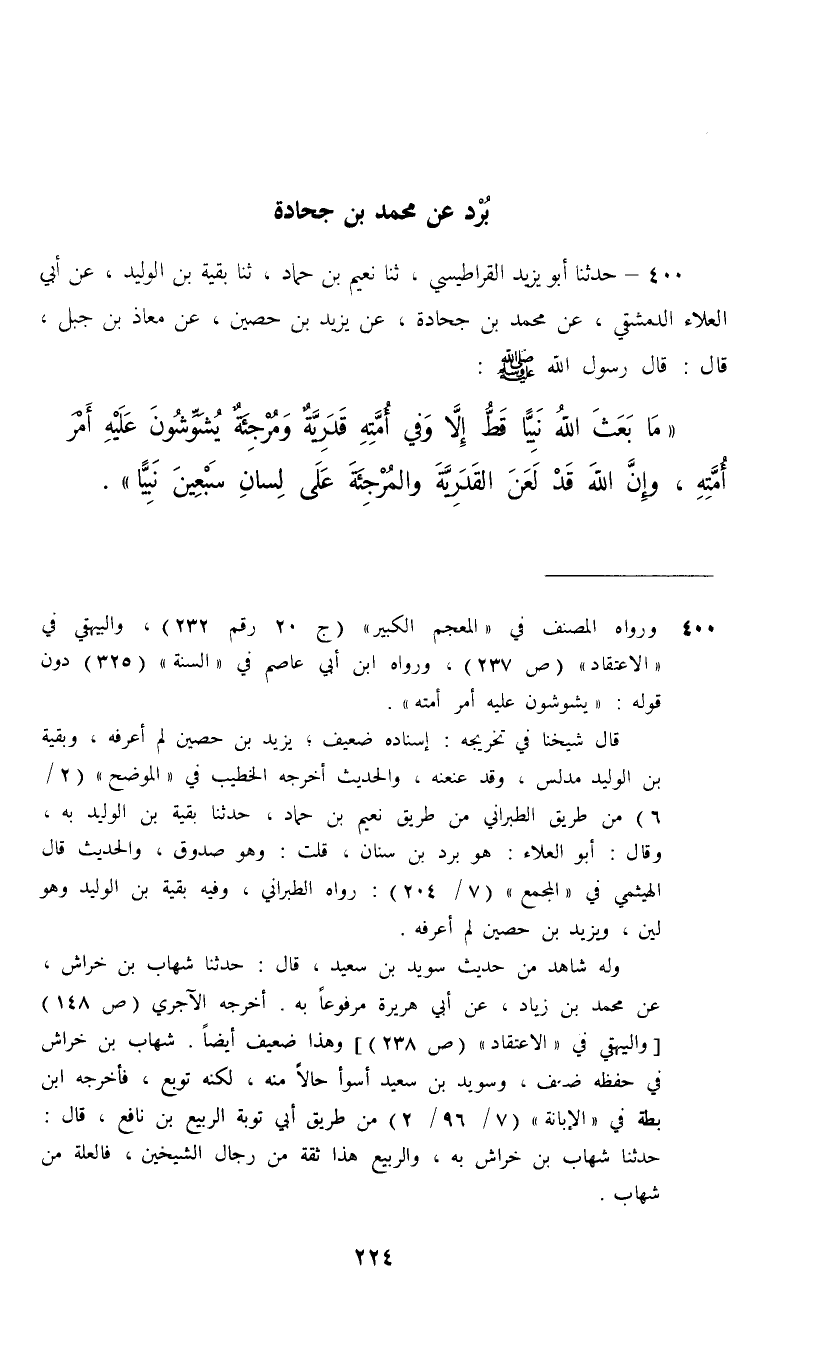 بُرْد عن محمد بن جحادة
٤٠٠ – حدثنا أبو يزيد القراطيسي ، ثنا نعيم بن حماد ، ثنا بقية بن الوليد ، عن أبي
العلاء الدمشقي ، عن محمد بن جحادة ، عن يزيد بن حصين ، عن معاذ بن جبل ،
قال : قال رسول الله ﷺ :
« مَا بَعَثَ اللهُ نَبِيًّا قَطُّ إِلَّا وَفي أُمَّتِهِ قَدَرِيَّةٌ وَمُرْجِئَةٌ يُشَوِّشُونَ عَلَيْهِ أَمْرَ
أُمَّتِهِ ، وإِنَّ اللهَ قَدْ لَعَنَ القَدَرِيَّةَ والمُرْجِئَةَ عَلَى لِسانِ سَبْعِينَ نَبِيًّا » .
٤٠٠ ورواه المصنف في « المعجم الكبير » (ج ٢٠ رقم ٢٣٢) ، والبيهقي في
« الاعتقاد » (ص ٢٣٧) ، ورواه ابن أبي عاصم في « السنة » (٣٢٥) دون
قوله : « يشوشون عليه أمر أمته » .
قال شيخنا في تخريجه : إسناده ضعيف ؛ يزيد بن حصين لم أعرفه ، وبقية
بن الوليد مدلس ، وقد عنعنه ، والحديث أخرجه الخطيب في « الموضح » (٢ /
٦) من طريق الطبراني من طريق نعيم بن حماد ، حدثنا بقية بن الوليد به ،
وقال : أبو العلاء : هو برد بن سنان ، قلت : وهو صدوق ، والحديث قال
الهيثمي في « المجمع » (٧ / ٢٠٤) : رواه الطبراني ، وفيه بقية بن الوليد وهو
لين ، ويزيد بن حصين لم أعرفه .
وله شاهد من حديث سويد بن سعيد ، قال : حدثنا شهاب بن خراش ،
عن محمد بن زياد ، عن أبي هريرة مرفوعاً به . أخرجه الآجري (ص ١٤٨)
[ والبيهقي في « الاعتقاد » (ص ٢٣٨) ] وهذا ضعيف أيضاً . شهاب بن خراش
في حفظه ضعف ، وسويد بن سعيد أسوأ حالاً منه ، لكنه توبع ، فأخرجه ابن
بطة في « الإبانة » (٧ / ٩٦ / ٢) من طريق أبي توبة الربيع بن نافع ، قال :
حدثنا شهاب بن خراش به ، والربيع هذا ثقة من رجال الشيخين ، فالعلة من
شهاب .
٢٢٤